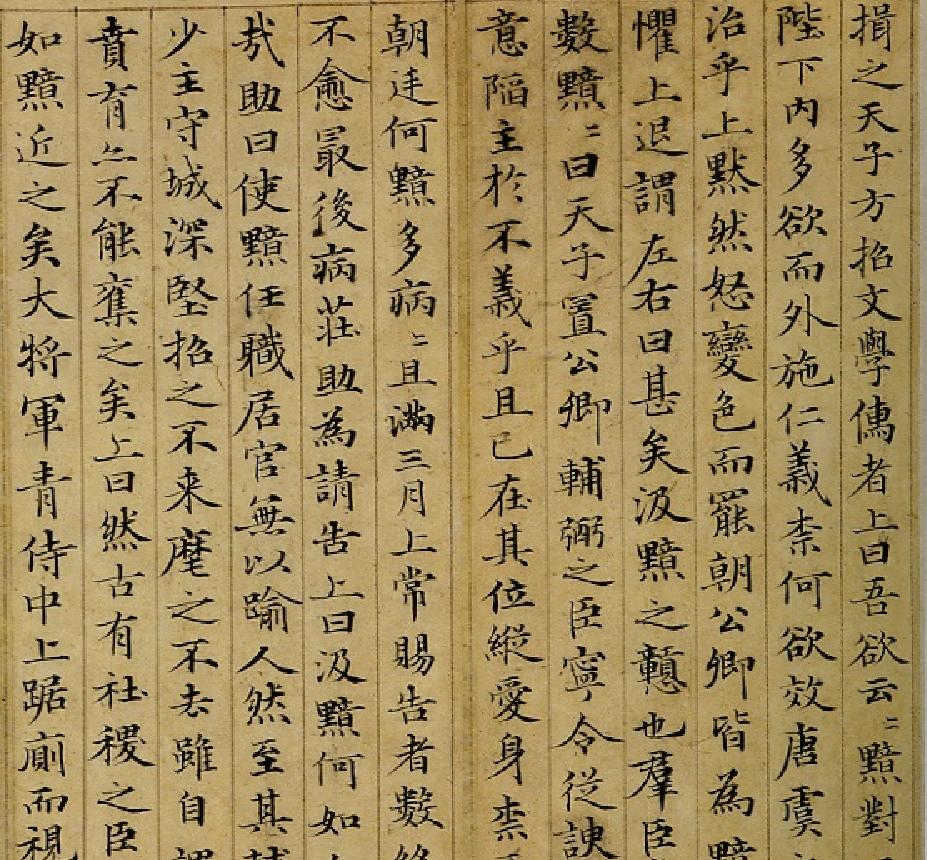 揖之天子方招文學儒者上曰吾欲云〻黯對
陛下内多欲而外施仁義柰何欲效唐虞
治乎上默然怒變色而罷朝公卿皆為黯
懼上退謂左右曰甚矣汲黯之戇也羣臣
數黯〻曰天子置公卿輔弼之臣寧令從諛
意陷主於不義乎且已在其位縱愛身柰
朝廷何黯多病〻且滿三月上常賜告者數
不愈最後病莊助為請告上曰汲黯何如
哉助曰使黯任職居官無以踰人然至其
少主守城深堅招之不来麾之不去雖自
賁育亦不能奪之矣上曰然古有社稷之臣
如黯近之矣大將軍青侍中上踞廁而視